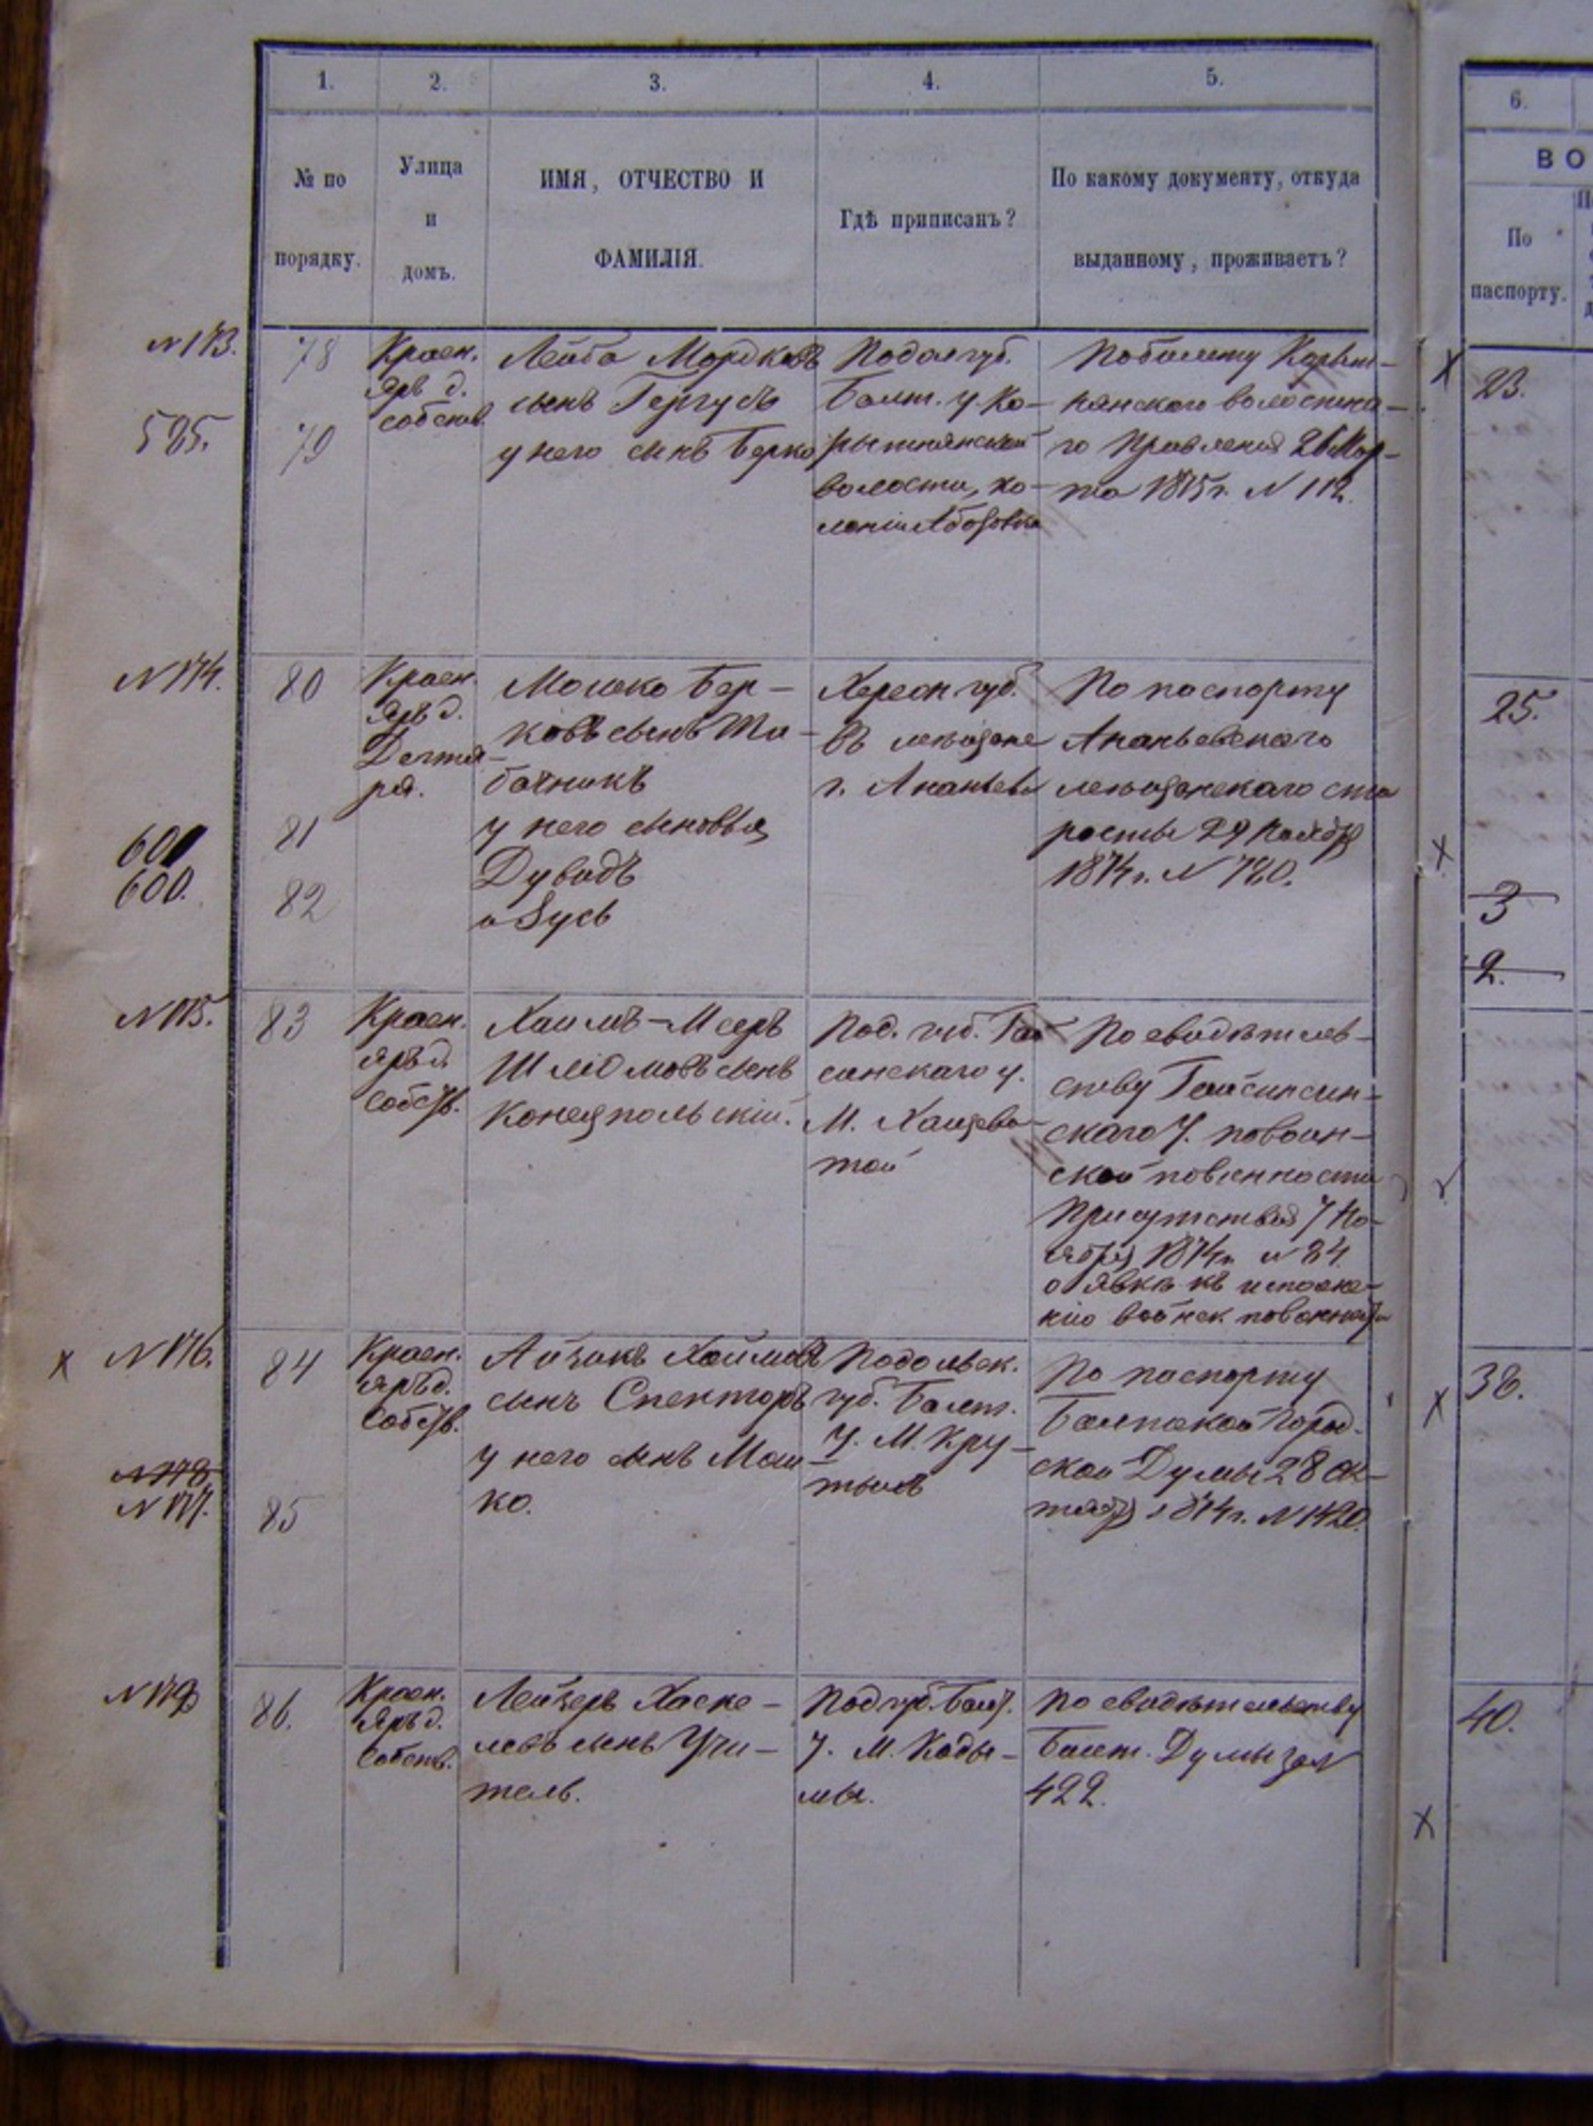 1. 2. 3. 4. 5. 6.
№ по порядку.
Улица и домъ.
ИМЯ, ОТЧЕСТВО И ФАМИЛІЯ.
Гдѣ приписанъ?
По какому документу, откуда выданному, проживаетъ?
ВО
По паспорту.
N 173.
525.
78
79
Красн.
Яръ д.
собств.
Лейба Мордковъ
сынъ Гергусъ
у него сынъ Берко
Подол губ.
Балт. у. Ко-
рытнянской
волости, ко-
лоніи Абазовка
По билету Корыт-
нянского волостна-
го Правленія 26 Мар-
та 1875 г. N 112.
23.
N 174.
601
600.
80
81
82
Красн.
Яръ д.
Дегтя-
ря.
Мошко Бер-
ковъ сынъ Та-
бачникъ
у него сыновья
Дувидъ
и Зусь
Херсон губ.
въ мещане
г. Ананьевъ
По паспорту
Ананьевскаго
мещанскаго ста
росты 29 Ноября
1874 г. N 780.
25.
3
2.
N 175.
83
Красн.
Яръ д.
Собств.
Хаимъ-Мееръ
Шліомовъ сынъ
Конецпольскій.
Под. губ. Гай
синскаго у.
М. Хащева-
той
По свидѣтель-
ству Гайсинсин-
скаго У. по воин-
ской повинности
Присутствія 7 Но-
ября 1874 г. N 84.
о явкѣ къ исполне-
нію воинск. повинности
N 176.
N 178
N 177.
84
85
Красн.
Яръ д.
Собств.
Айзикъ Хаймовъ
сынъ Спекторъ
у него сынъ Мош-
ко.
Подольск.
губ. Балт.
У. М. Кру-
тыхъ
По паспорту
Балтской Город-
ской Думы 28 Ок-
тября 1874 г. N 1420.
38.
86.
Красн.
Яръ д.
Собств.
Лейзеръ Хаске-
левъ сынъ Учи-
тель.
Под губ. Балт.
У. М. Коды-
мы.
По свидѣтельству
Балт. Думы за N
422.
40.